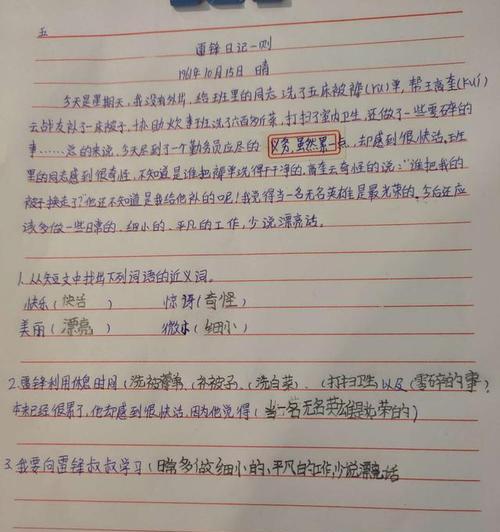 五
雷锋日记一则
1961年10月15日 晴
今天是星期天,我没有外出,给班里的同志洗了五床被褥(rù)单,帮王高奎(kuí)
云战友补了一床被子,协助炊事班洗了六百多斤菜,打扫了室内卫生,还做了一些零碎的
事……总的来说,今天尽到了一个勤务员应尽的义务,虽然累一点,却感到很快活。班
里的同志感到很奇怪,不知道是谁把褥单洗得干干净的,高奎云奇怪的说:“谁把我的
被子换走了?”他还不知道是我给他补的呢!我觉得当一名无名英雄是最光荣的。今后还应
该多做一些日常的、细小的、平凡的工作,少说漂亮话。
1.从短文中找出下列词语的近义词。
快乐(快活) 惊讶(奇怪)
美丽(漂亮) 微小(细小)
2.雷锋利用休息时间(洗被褥单)、(补被子)、(洗白菜)、(打扫卫生)以及(零碎的事)
本来已经很累了,他却感到很快活,因为他觉得(当一名无名英雄是光荣的)
3.我要向雷锋叔叔学习(日常多做细小的、平凡的工作,少说漂亮话